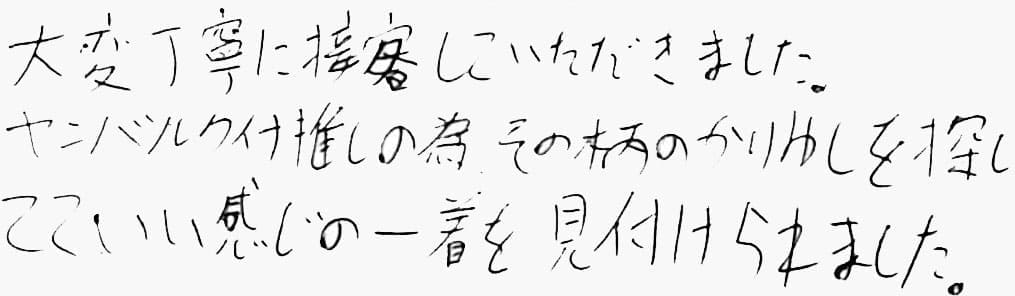 大変丁寧に接客していただきました。
ヤンバルクイナ推しの為、その柄のかりゆしを探し
てていい感じの一着を見付けられました。